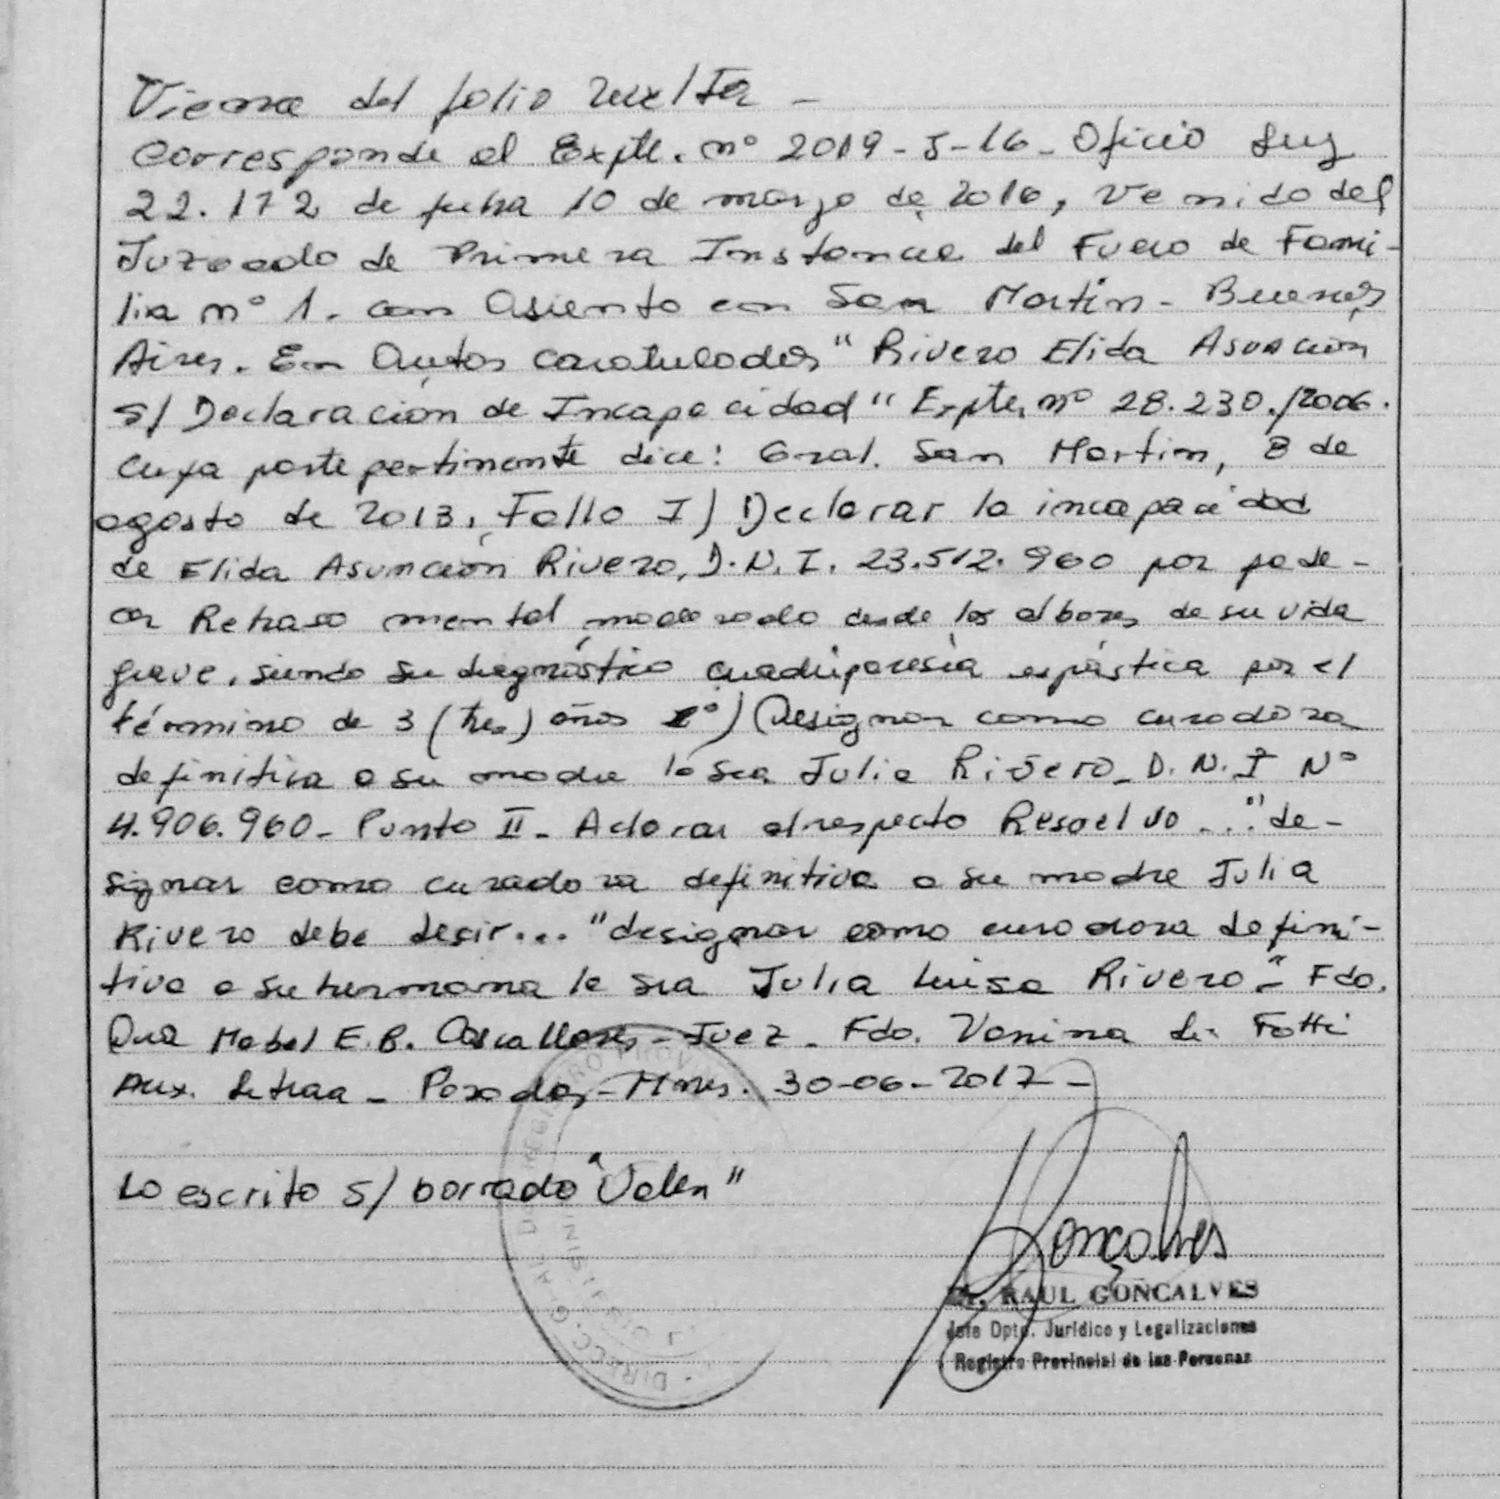 Viene del folio vuelta -
Corresponde al Expte. nº 2019-J-16- Oficio Ley
22.172 de fecha 10 de marzo de 2016, Venido del
Juzgado de Primera Instancia del Fuero de Fami-
lia nº 1. con Asiento en San Martin - Buenos
Aires. En Autos Caratulados "Rivero Elida Asunción
s/ Declaración de Incapacidad" Expte. nº 28.230./2006.
Cuya parte pertinente dice: Gral. San Martin, 8 de
agosto de 2013, Fallo I) Declarar la incapacidad
de Elida Asunción Rivero, D.N.I. 23.512.960 por pade-
cer Retraso mental moderado desde los albores de su vida
grave. siendo su diagnóstico cuadriparesia espástica por el
término de 3 (tres) años 2º) Designar como curadora
definitiva a su madre la Sra Julia Rivero - D.N.I Nº
4.906.960- Punto II- Aclarar al respecto Resuelvo ..." de-
signar como curadora definitiva a su madre Julia
Rivero debe desir... "designar como curadora defini-
tiva a su hermana la Sra Julia Luisa Rivero-" Fdo.
Dra Mabel E.B. Cascallares - Juez - Fdo. Vanina di Fotti
Aux. Letraa - Posadas - Mnes. 30-06-2017-
Lo escrito s/ borrado "Valen"
Goncalves
Dr. RAUL GONCALVES
Jefe Dpto. Jurídico y Legalizaciones
Registro Provincial de las Personas